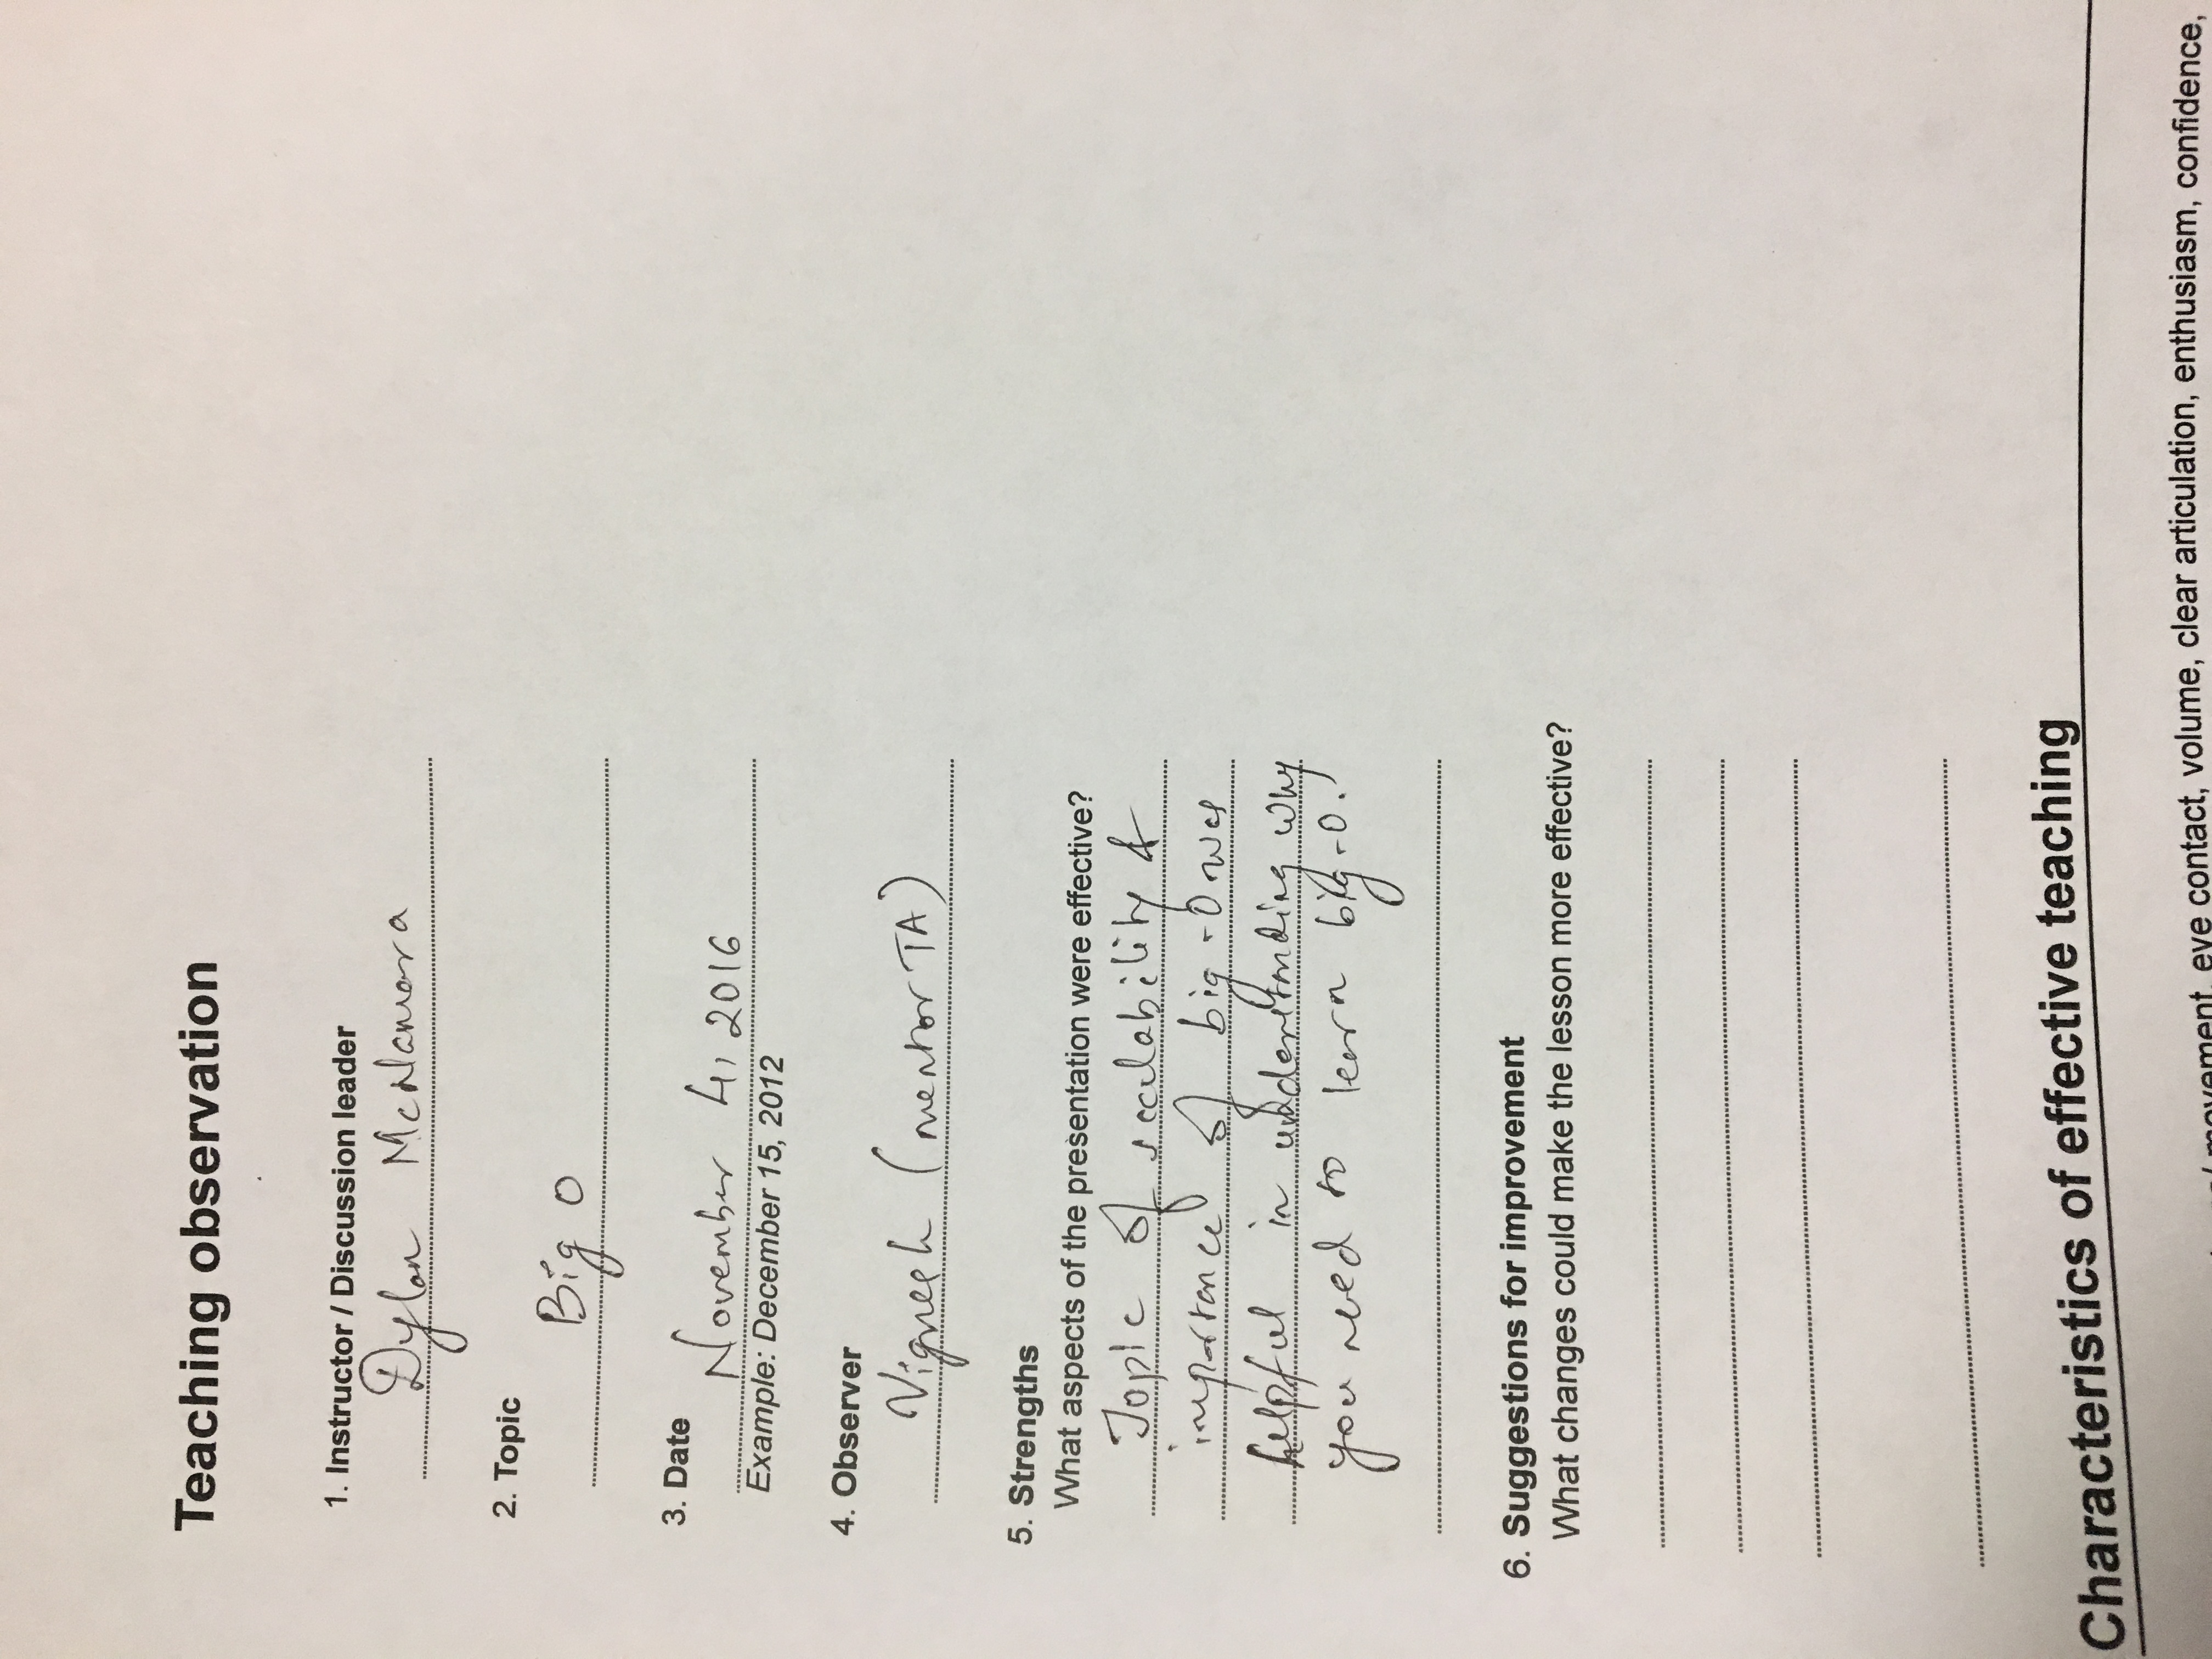 Teaching observation
1. Instructor / Discussion leader
Dylan McNamara
2. Topic
Big O
3. Date
November 4, 2016
Example: December 15, 2012
4. Observer
Vignesh (mentor TA)
5. Strengths
What aspects of the presentation were effective?
Topic of scalability &
importance of big-O was
helpful in understanding why
you need to learn big-O.
6. Suggestions for improvement
What changes could make the lesson more effective?
Characteristics of effective teaching
movement, eye contact, volume, clear articulation, enthusiasm, confidence,